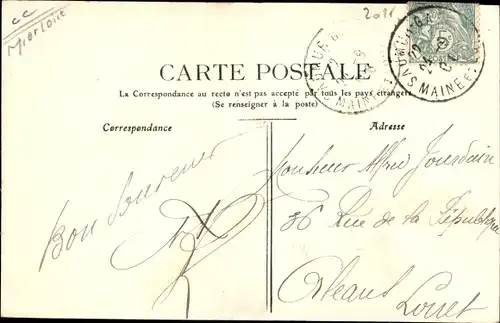 cc
2011
CARTE POSTALE
La Correspondance au recto n'est pas accepté par tous les pays étrangers
(Se renseigner à la poste)
Correspondance
Adresse
Bon Souvenir
Monsieur Alfred Jourdain
36 Rue de la République
Orléans
Loiret